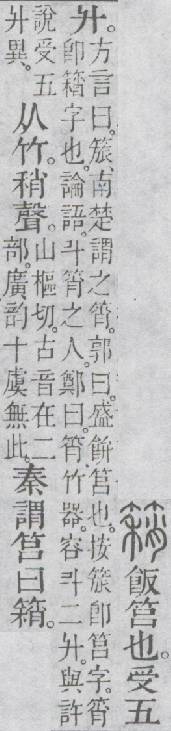 䈰飯筥也。受五
升。方言曰。南楚謂之筲。郭曰。盛餅筥也。按卽筥字。筲
卽䈰字也。論語。斗筲之人。鄭曰。筲、竹器。容斗二升。與許
說受五升異。从竹稍聲。山樞切。古音在二部。廣韵十虞無此。秦謂筥曰䈰。